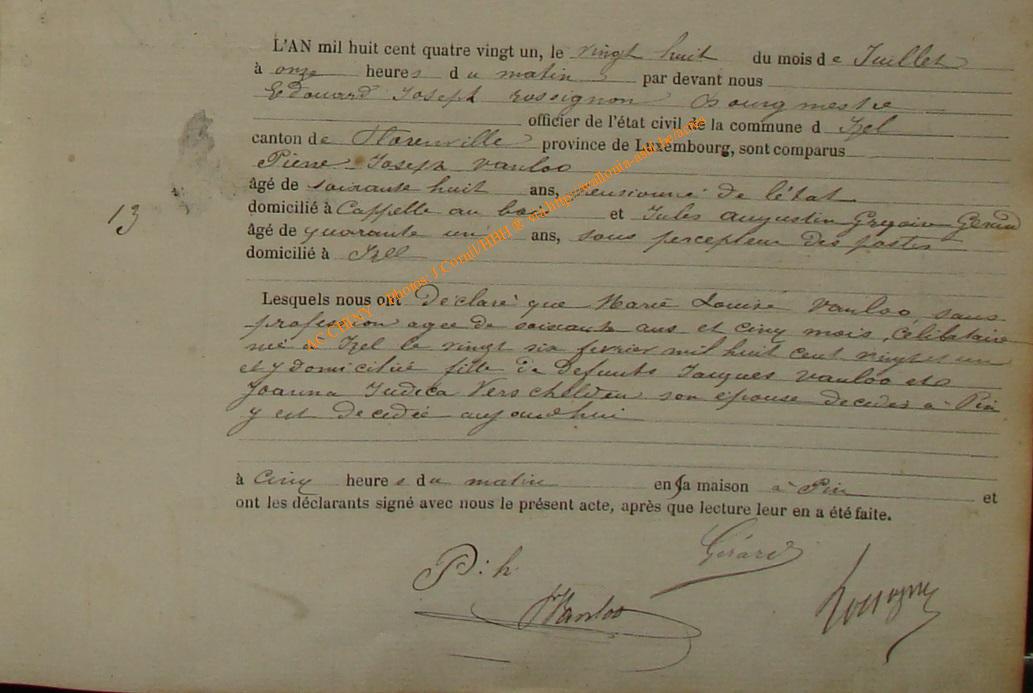 L'AN mil huit cent quatre vingt un, le vingt huit du mois de Juillet
à onze heures du matin par devant nous
Edouard Joseph Rossignon Bourgmestre
officier de l'état civil de la commune d Izel
canton de Florenville province de Luxembourg, sont comparus
Pierre Joseph Vanloo
âgé de soixante huit ans, pensionné de l'état
domicilié à Cappelle au bois et Jules Augustin Gregoire Gérard
13
âgé de quarante un ans, sous percepteur des postes
domicilié à Izel
Lesquels nous ont déclaré que Marie Louise Vanloo, sans
profession agée de soixante ans et cinq mois, célibataire
née à Izel le vingt six fevrier mil huit cent vingt et un
et y domiciliée fille de defunts Jacques Vanloo et
Joanna Judica Verschelden son épouse decedés à Pin
y est decedée aujourd'hui
à cinq heures du matin en sa maison à Pin et
ont les déclarants signé avec nous le présent acte, après que lecture leur en a été faite.
Gérard
P: h
Vanloo
Rossignon
ACCHINY - Photos: J.Cornil/HHH ® via http://wallonia-asbl.be/actes